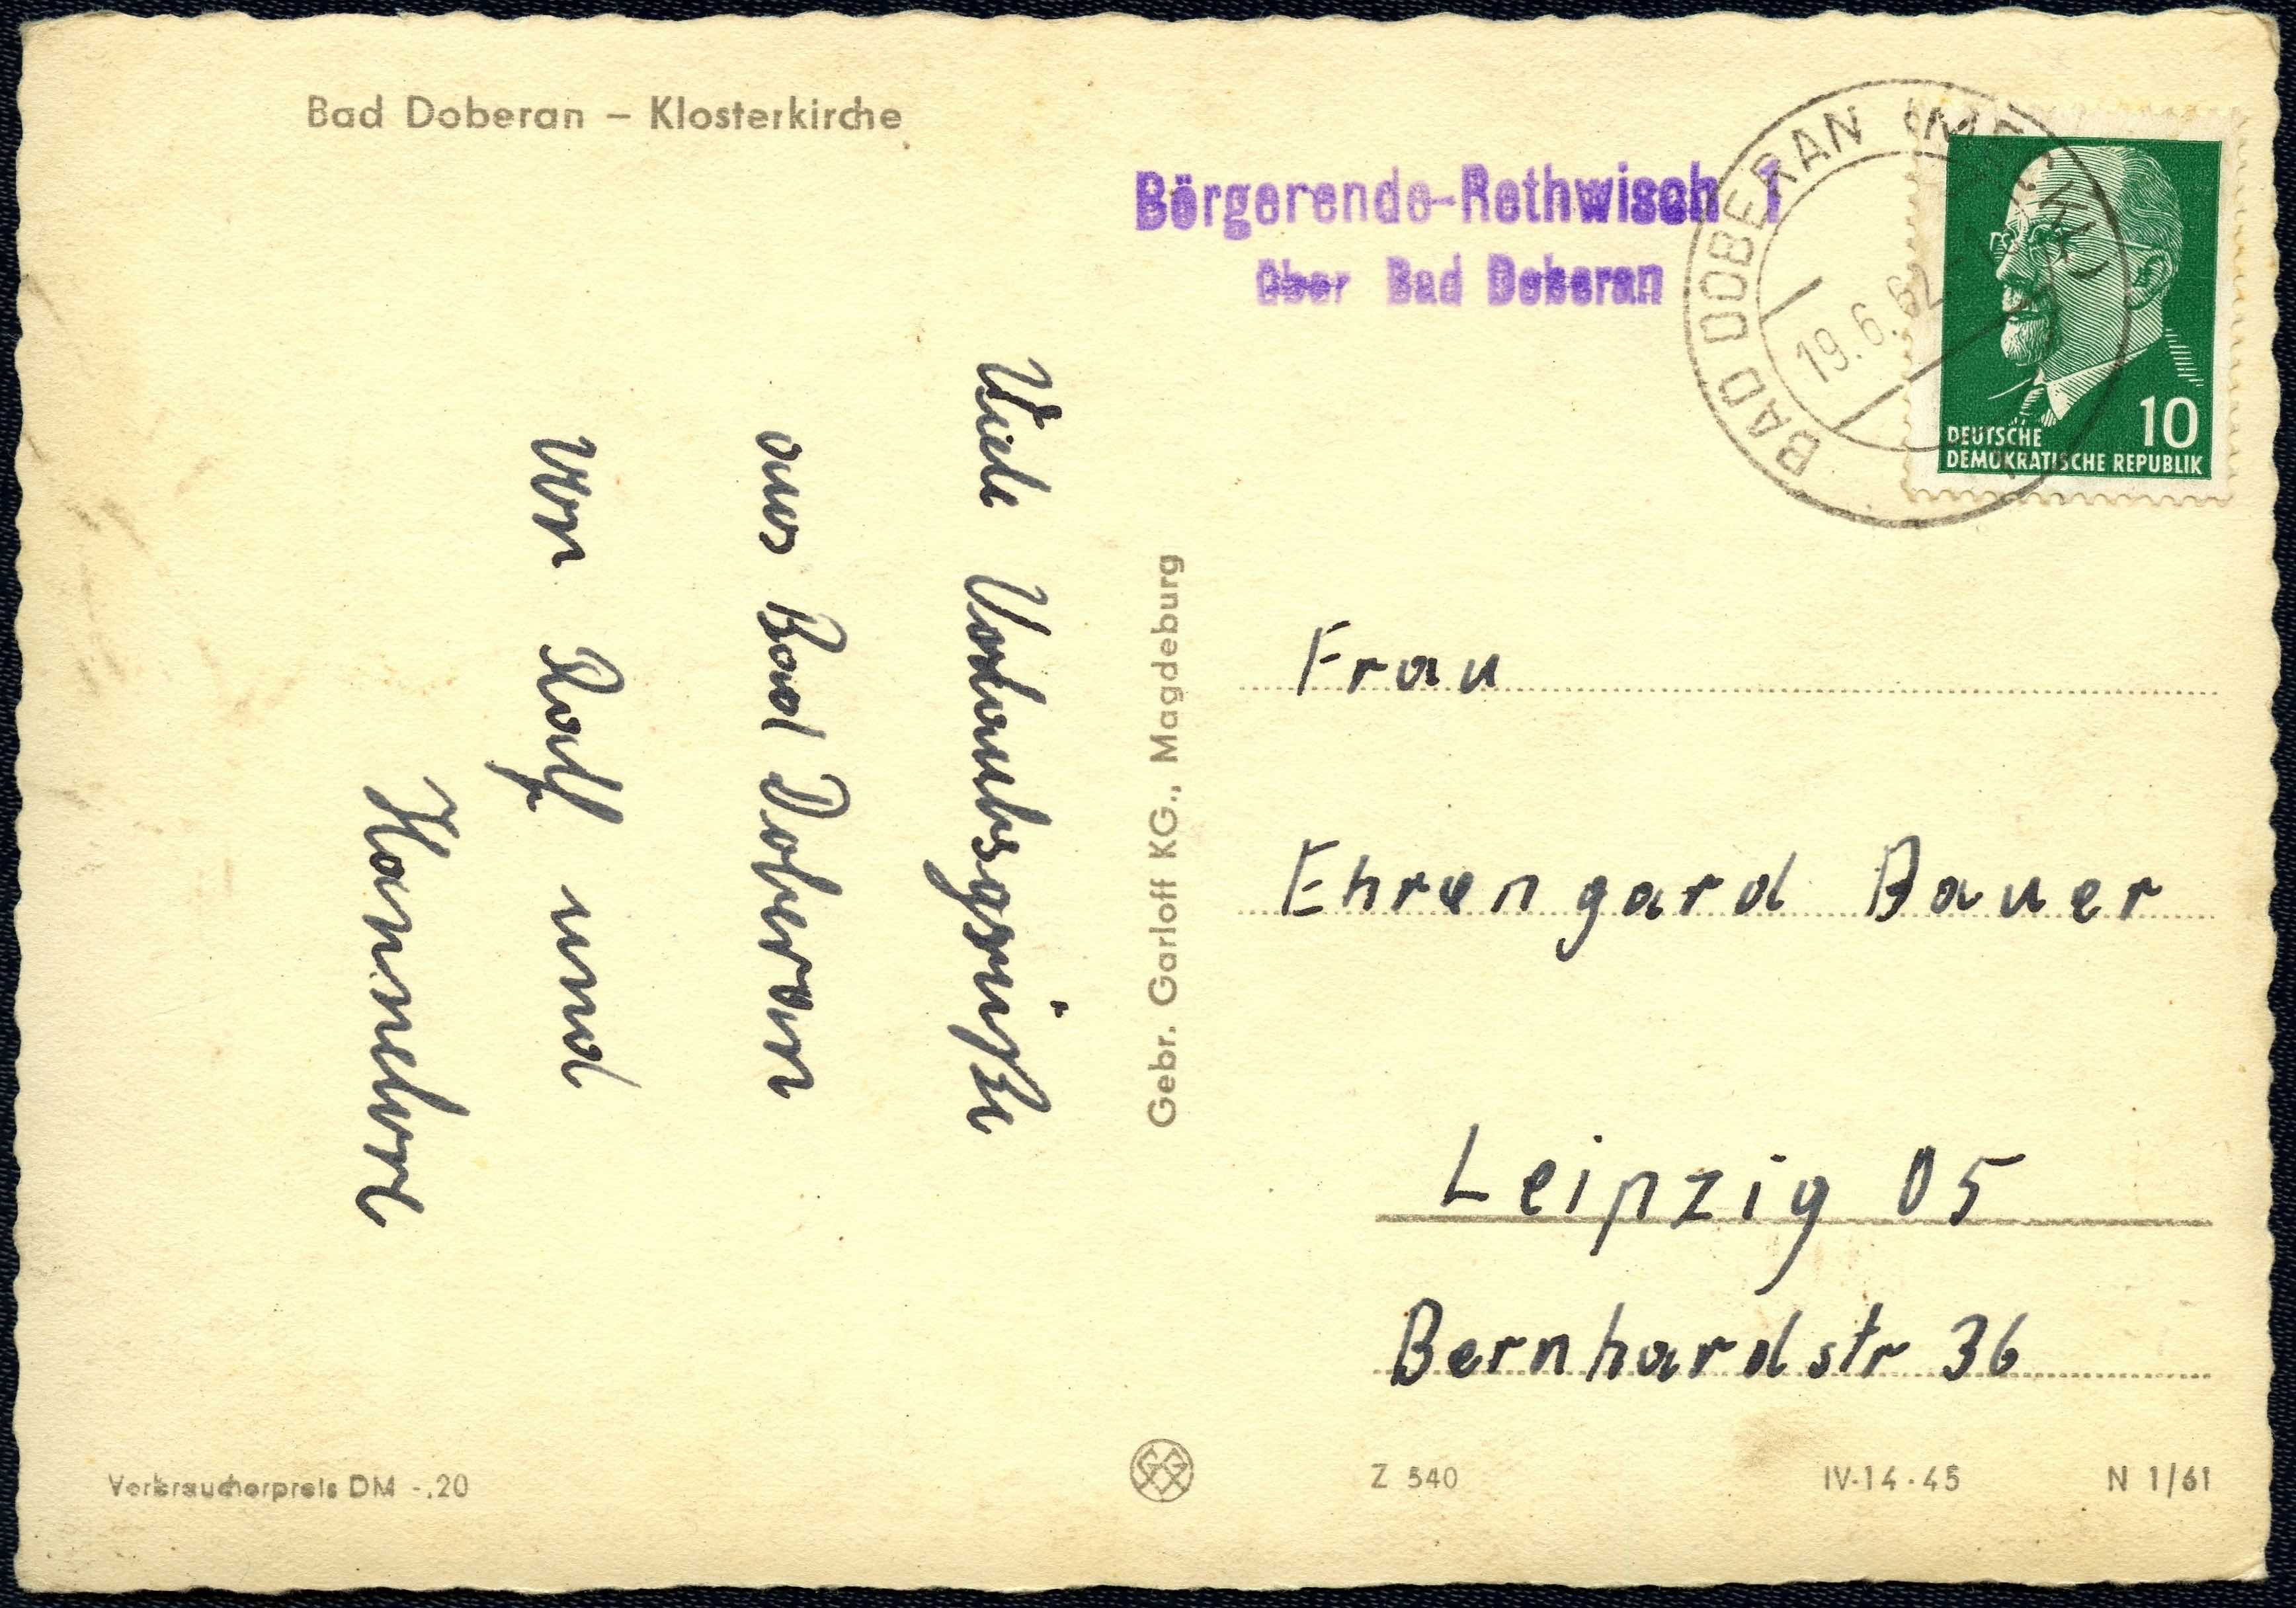 Bad Doberan – Klosterkirche
Börgerende-Rethwisch 1
über Bad Doberan
BAD DOBERAN (MECKL)
19.6.62
10
DEUTSCHE
DEMOKRATISCHE REPUBLIK
Viele Urlaubsgrüße
aus Bad Doberan
von Rolf und
Hannelore
Gebr. Garloff KG., Magdeburg
Frau
Ehrengard Bauer
Leipzig 05
Bernhardstr 36
Verbraucherpreis DM -.20
Z 540
IV-14-45
N 1/61